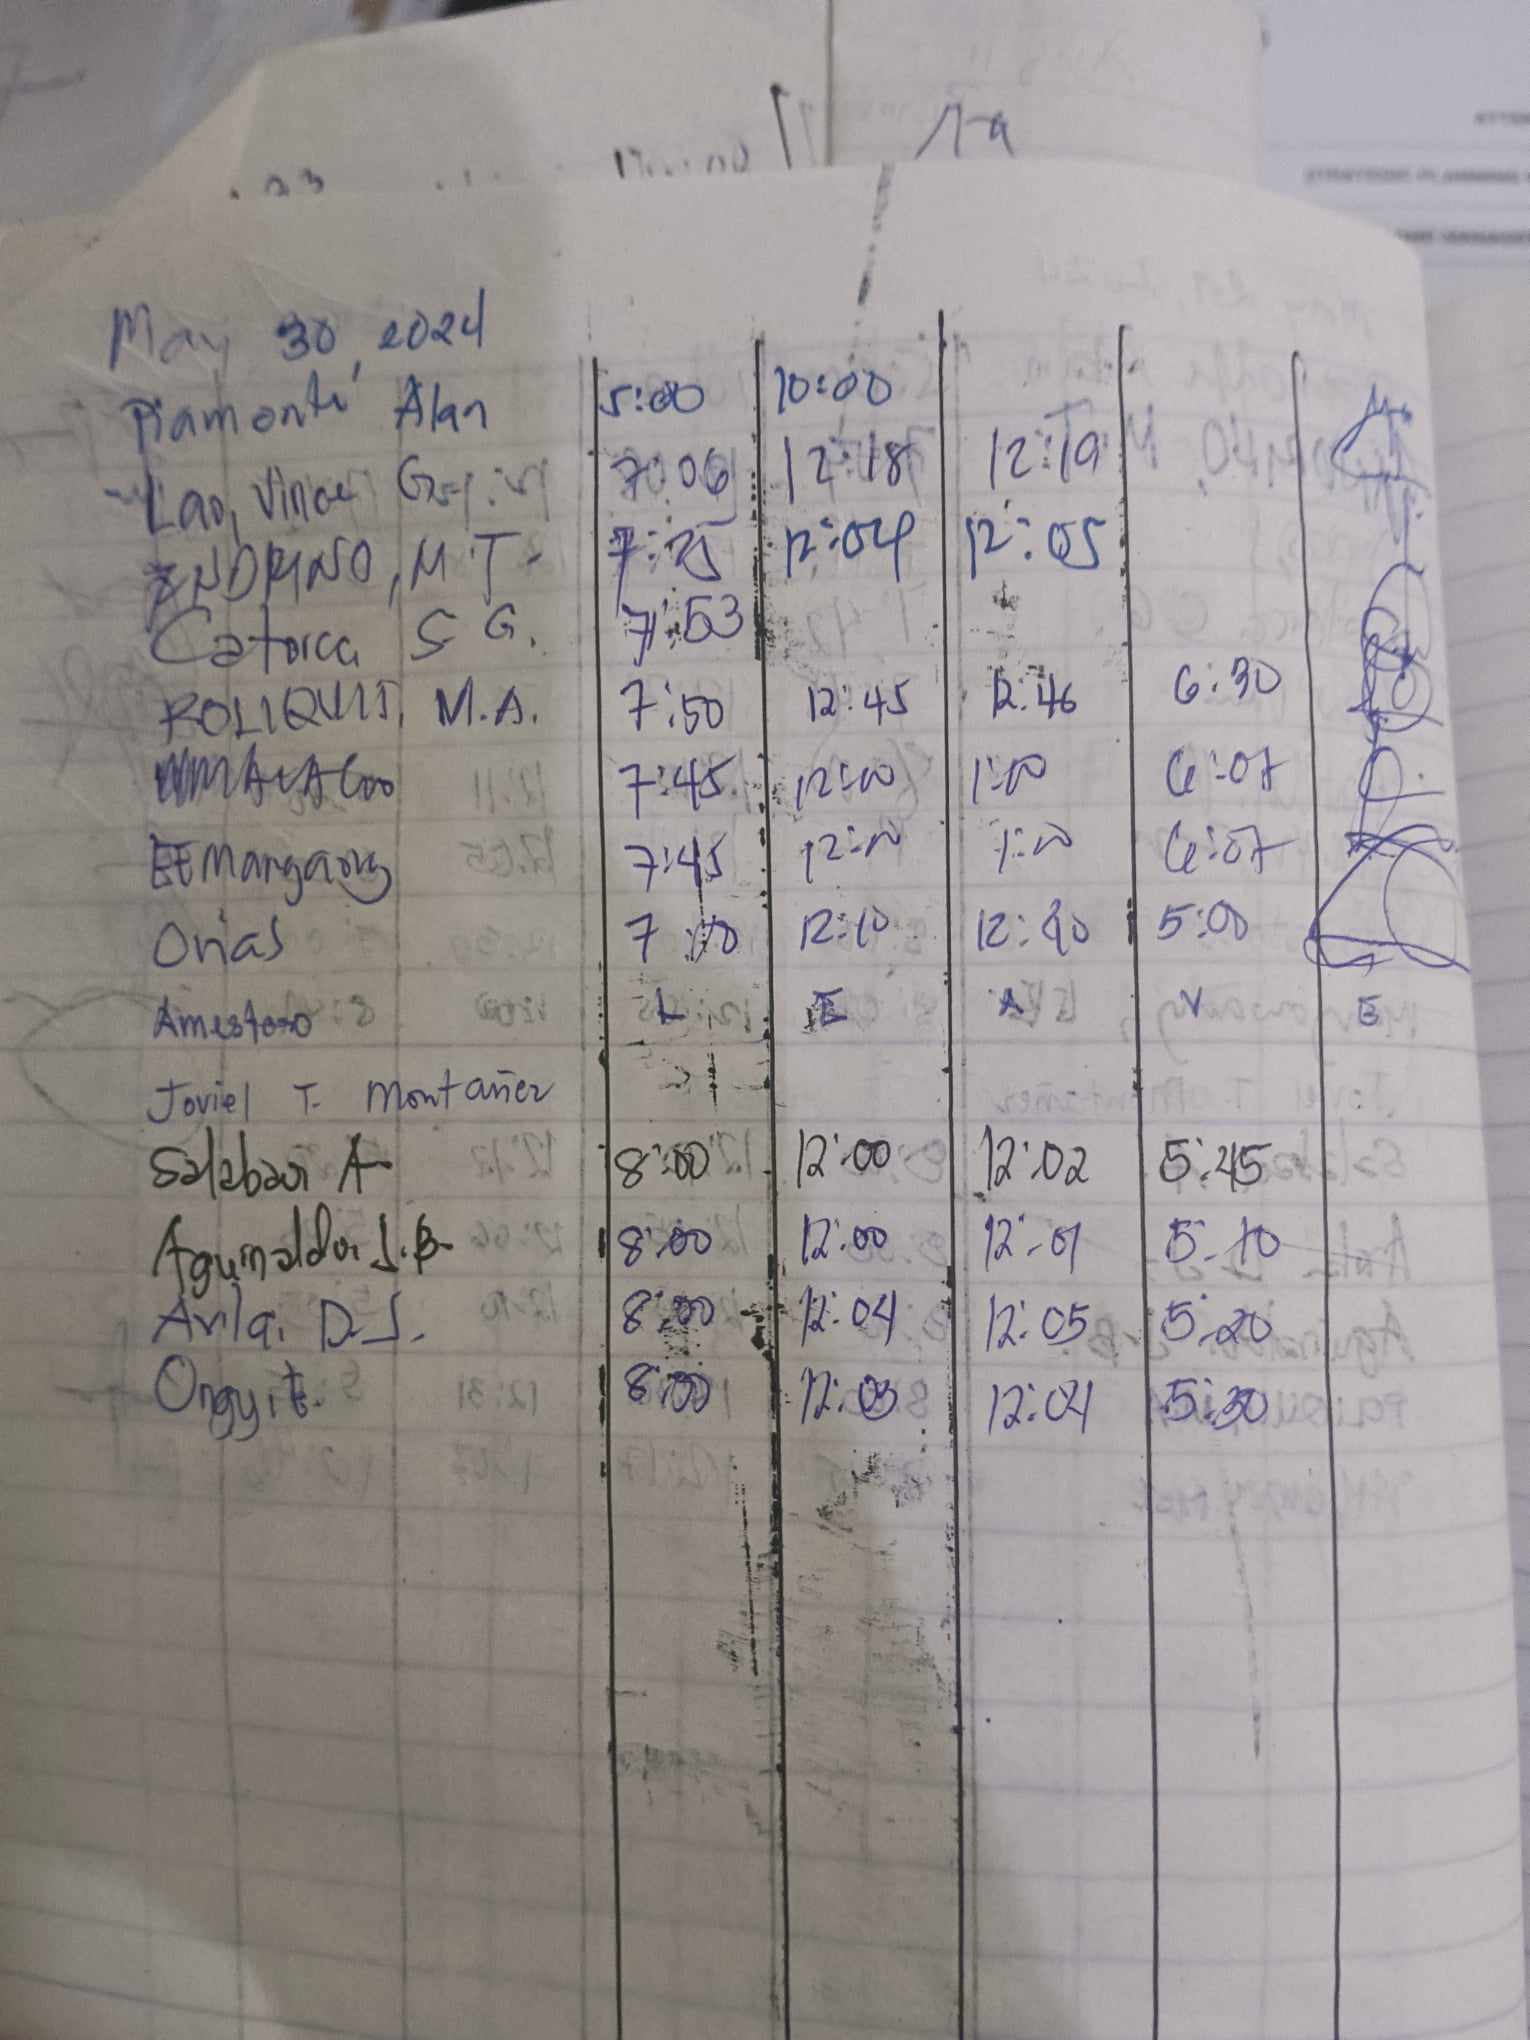 May 30, 2024
Piamonte Alan 5:00 10:00
Lao, Vince G. 7:06 12:18 12:19
ENDRINO, M.T. 7:25 12:04 12:05
Catorce S G. 7:53
ROLIQUIT, M.A. 7:50 12:45 12:46 6:30
7:45 12:00 1:00 6:07
EE Mangaong 7:45 12:00 1:00 6:07
Orias 7:10 12:10 5:00
Amestoso L E A V E
Joviel T. Montañez
Salabao A 8:00 12:00 12:02 5:45
Aguinaldo, J.B. 8:00 12:00 12:01 5:10
Avila, D.J. 8:00 12:04 12:05 5:20
Ongyit. 8:00 12:03 12:04 5:30